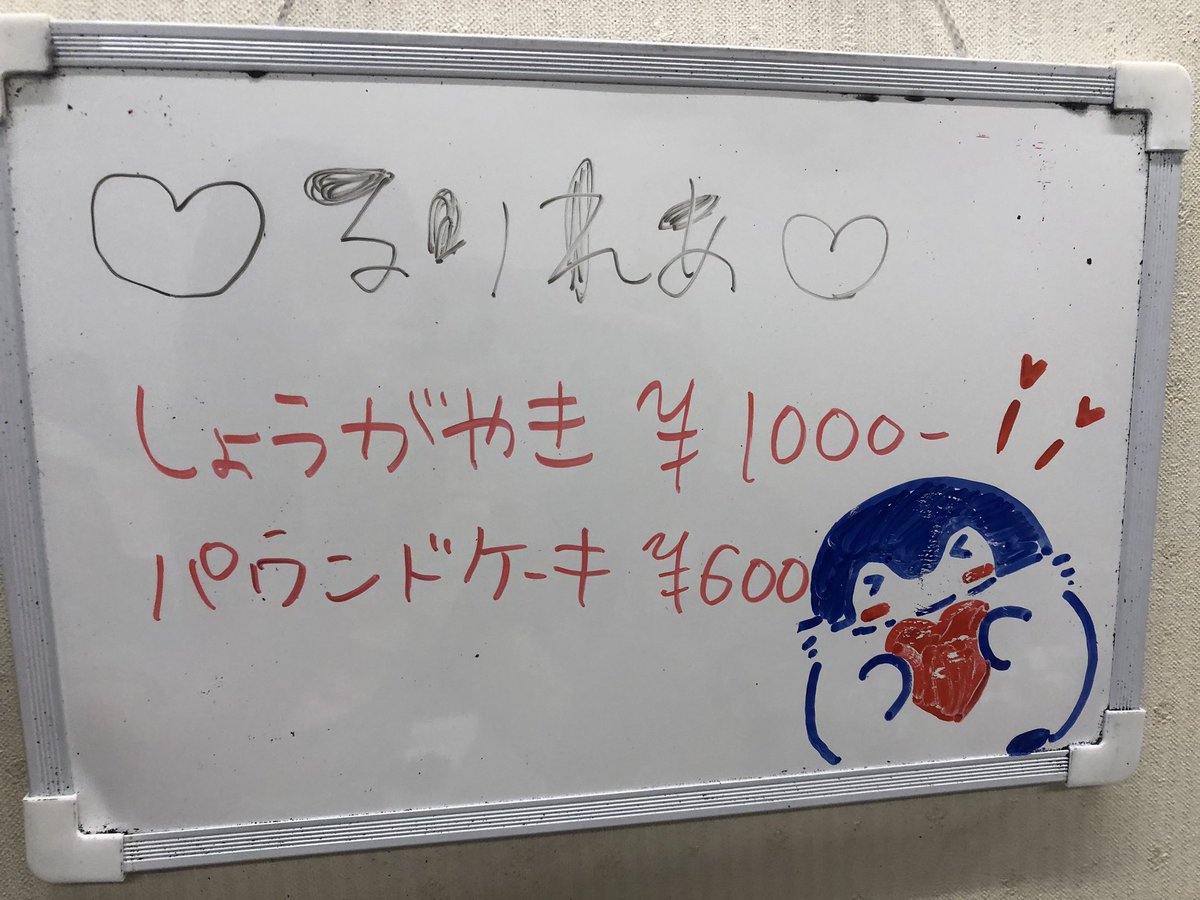 ♡ るりれあ ♡
しょうがやき ¥1000-
パウンドケーキ ¥600